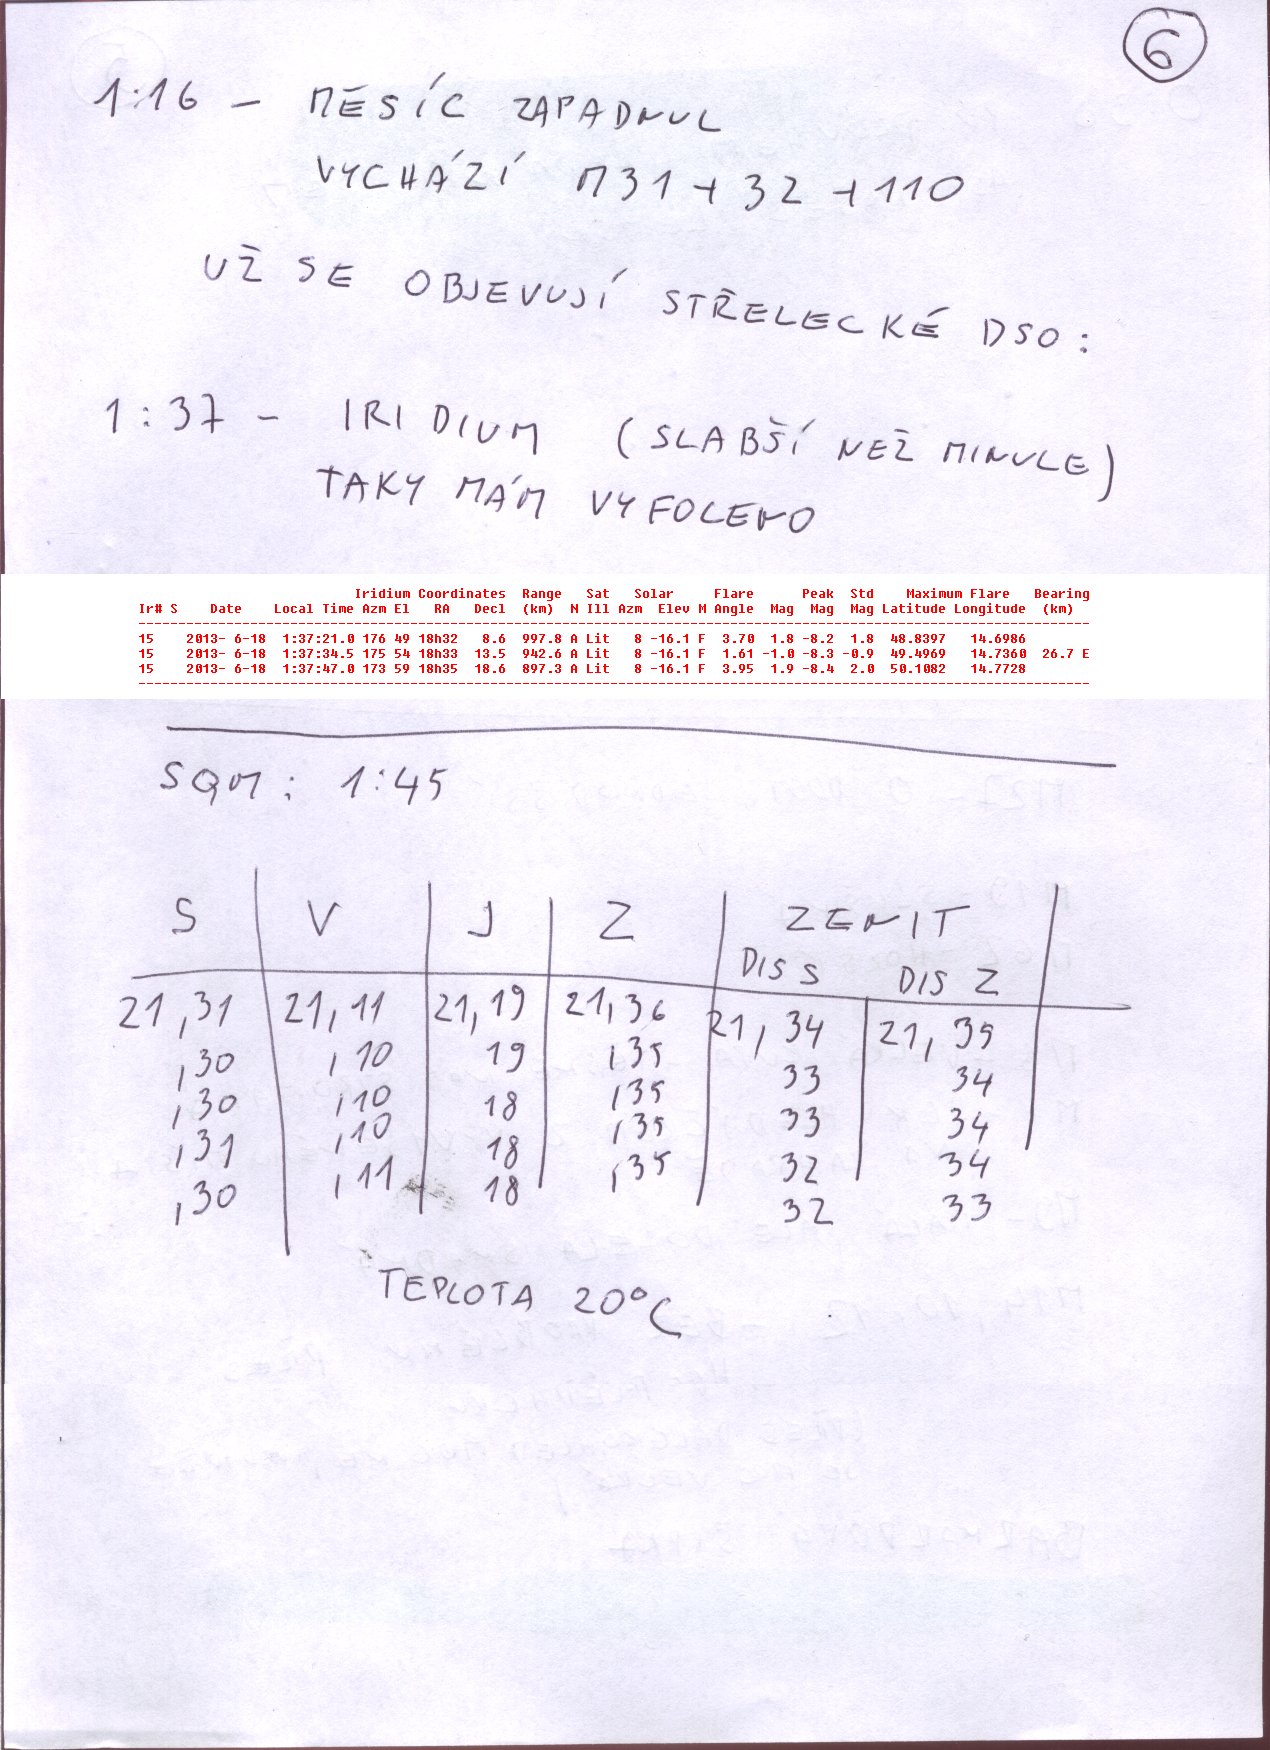 6
1:16 - MĚSÍC ZAPADNUL
VYCHÁZÍ M31 + 32 + 110
UŽ SE OBJEVUJÍ STŘELECKÉ DSO:
1:37 - IRIDIUM (SLABŠÍ NEŽ MINULE)
TAKY MÁM VYFOCENO
Iridium Coordinates Range Sat Solar Flare Peak Std Maximum Flare Bearing
Ir# S Date Local Time Azm El RA Decl (km) N Ill Azm Elev M Angle Mag Mag Mag Latitude Longitude (km)
15 2013- 6-18 1:37:21.0 176 49 18h32 8.6 997.8 A Lit 8 -16.1 F 3.70 1.8 -8.2 1.8 48.8397 14.6986
15 2013- 6-18 1:37:34.5 175 54 18h33 13.5 942.6 A Lit 8 -16.1 F 1.61 -1.0 -8.3 -0.9 49.4969 14.7360 26.7 E
15 2013- 6-18 1:37:47.0 173 59 18h35 18.6 897.3 A Lit 8 -16.1 F 3.95 1.9 -8.4 2.0 50.1082 14.7728
SQM: 1:45
S V J Z ZENIT
DIS S DIS Z
21,31 21,11 21,19 21,36 21,34 21,35
,30 ,10 19 ,35 33 34
,30 ,10 18 ,35 33 34
,31 ,10 18 ,35 32 34
,30 ,11 18 ,35 32 33
TEPLOTA 20°C